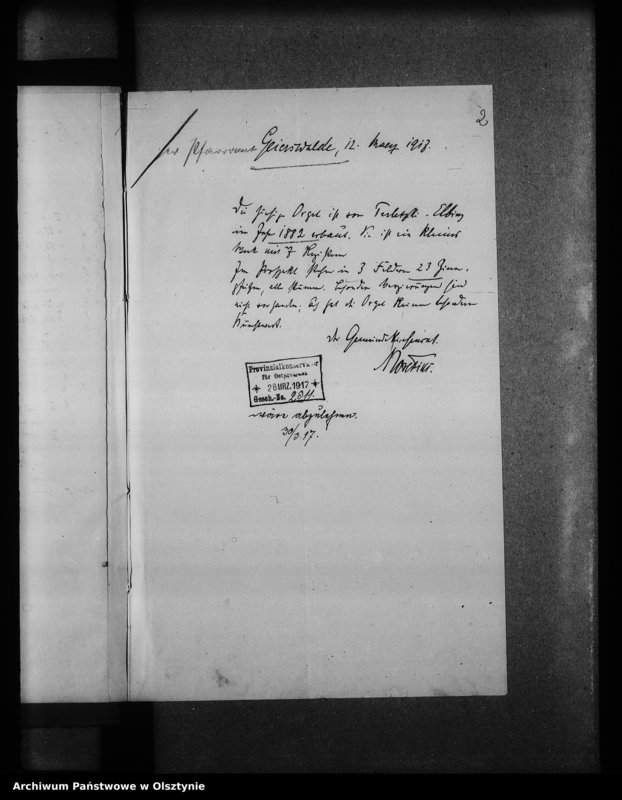 2
Pfarramt Geierswalde, 12. Maerz 1917.
Die hiesige Orgel ist von Terletzki - Elbing
im Jahr 1882 erbaut. Sie ist ein kleines
Werk mit 7 Registern
Im Prospekt stehen in 3 Feldern 23 Zinn-
pfeifen, alle stumm. Besondere Verzierungen sind
nicht vorhanden, auch hat die Orgel keinen besonderen
Kunstwert.
Der Gemeindekirchenrat.
Provinzialkonservator
für Ostpreussen
28 MRZ. 1917
Gesch.-No. 2311.
wäre abzulehnen.
30/3. 17.
Archiwum Państwowe w Olsztynie